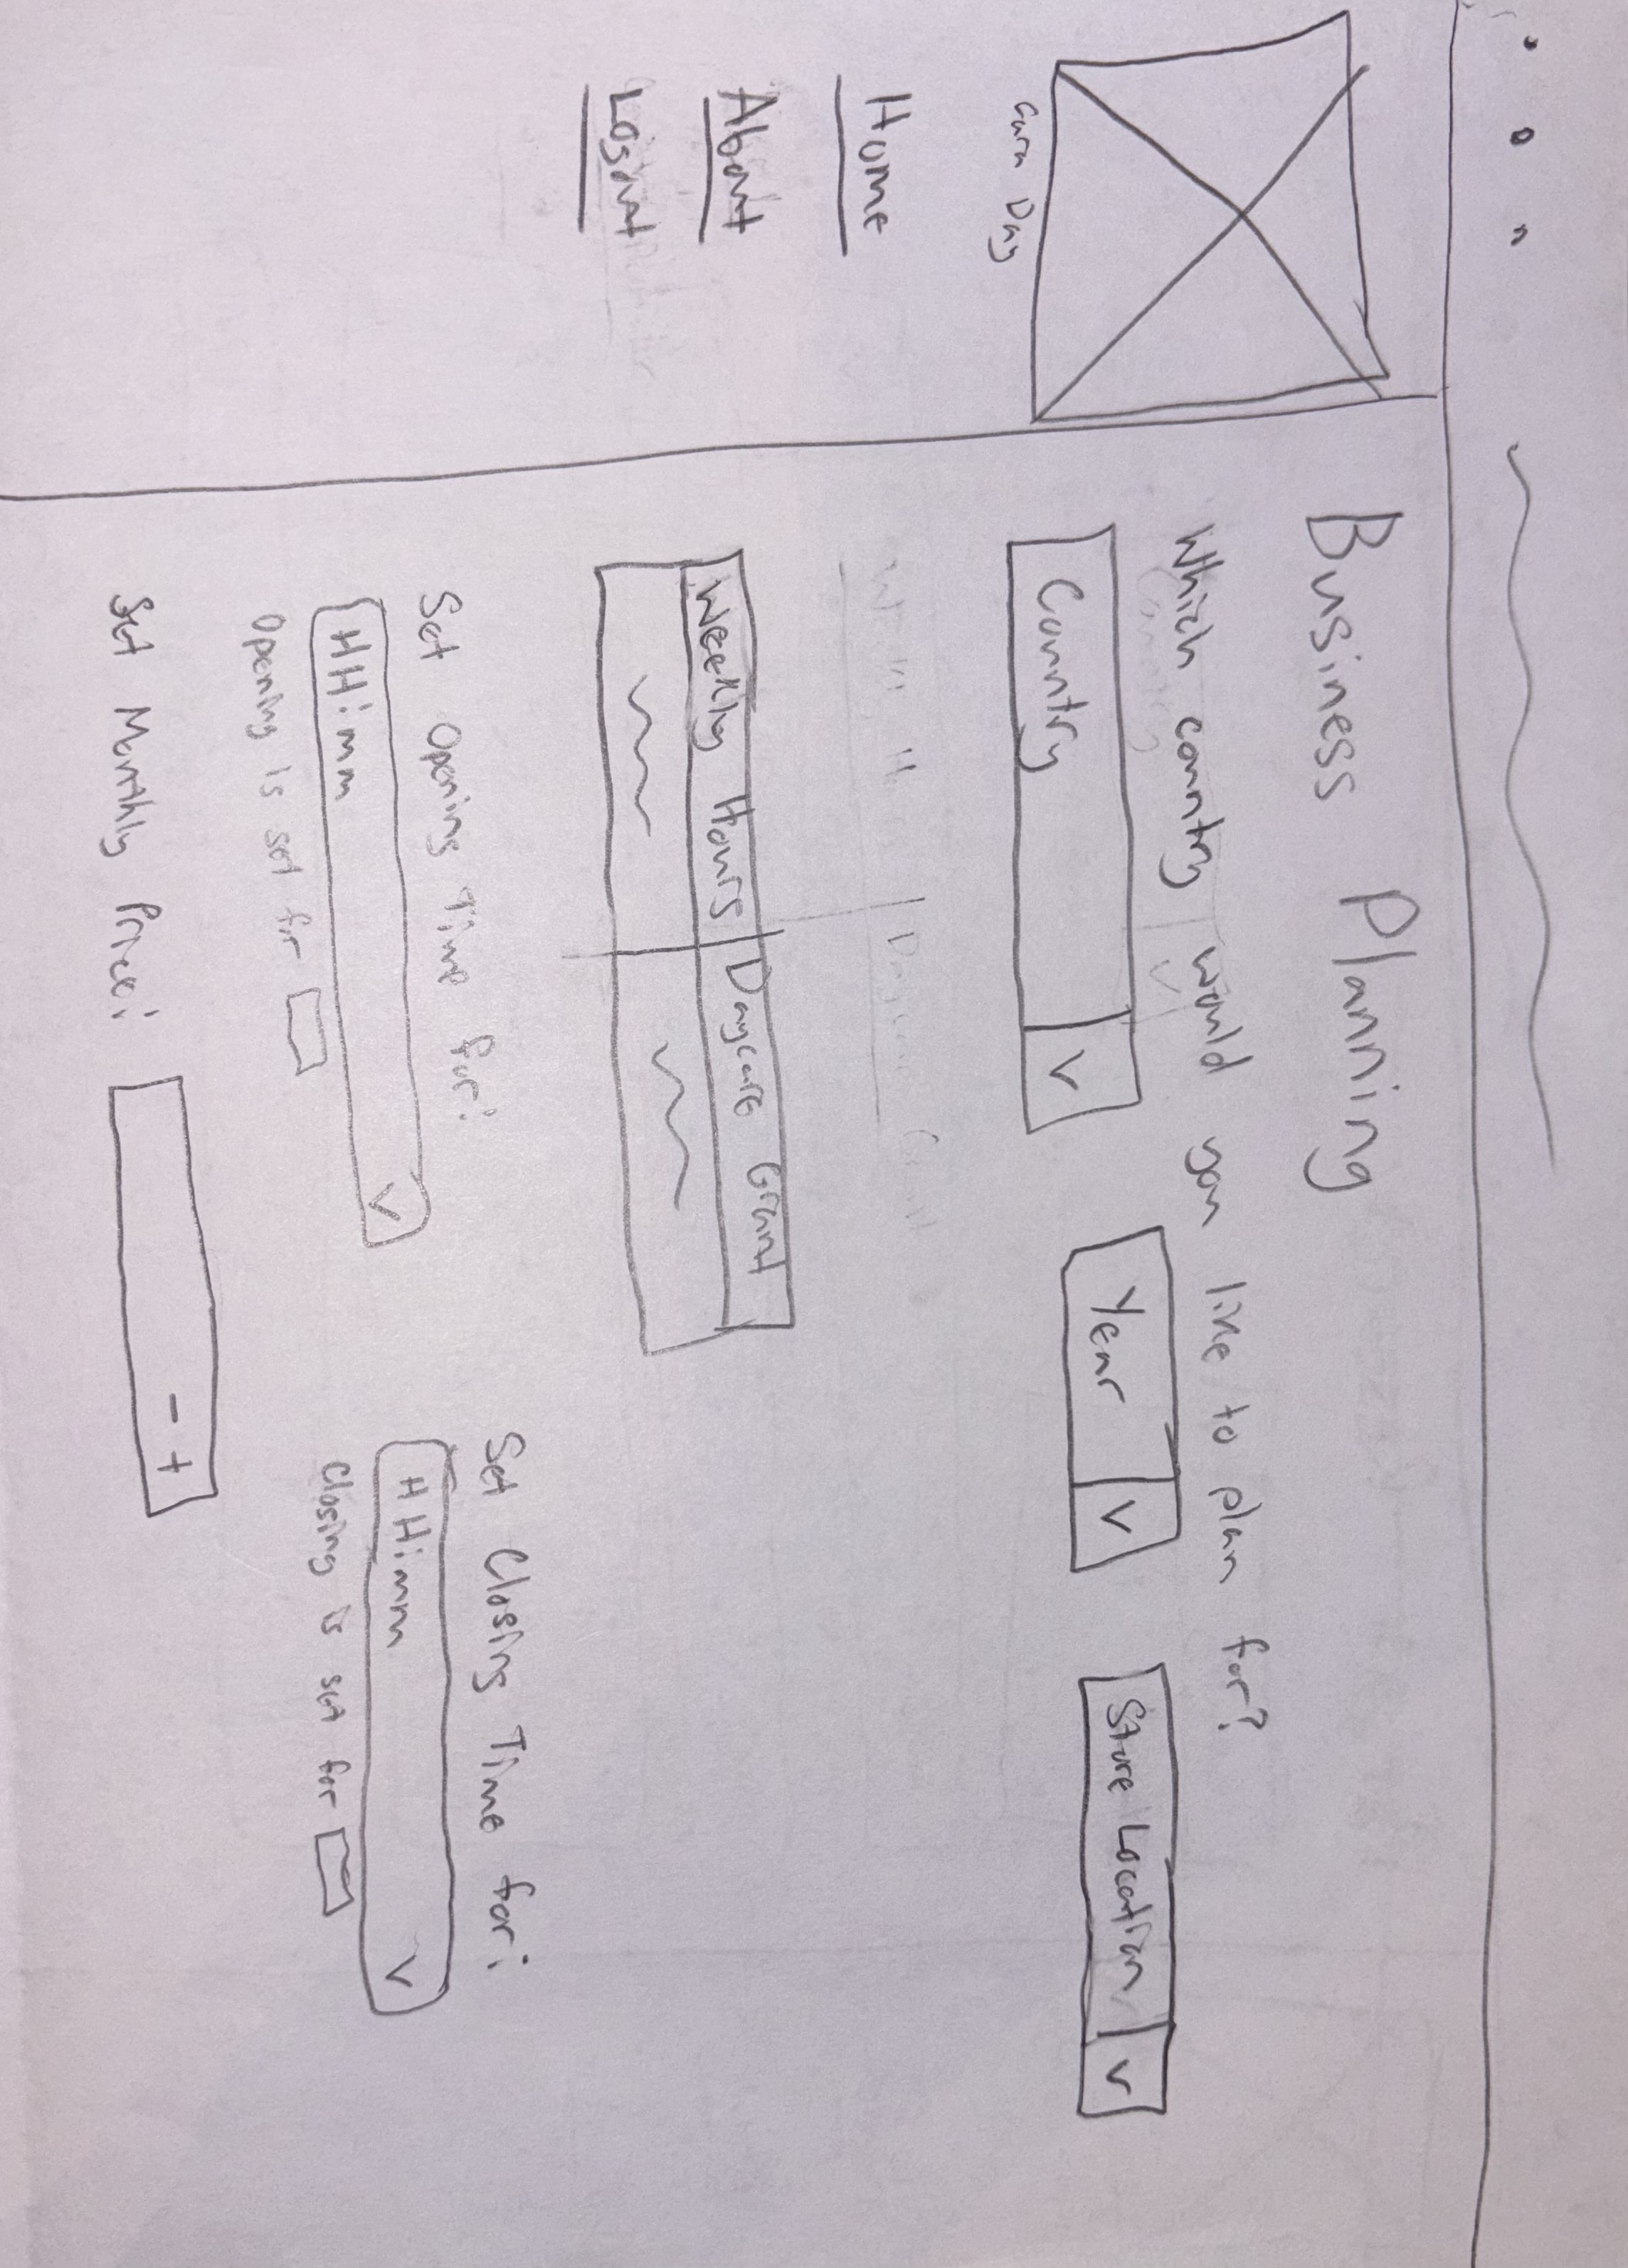 Business Planning
Which country would you like to plan for?
Country V
Year V
Store Location V
Home
About
Logout
Weekly Hours Daycare Grant
Set Opening Time for:
HH:mm V
Opening is set for
Set Closing Time for:
HH:mm V
Closing is set for
Set Monthly Price:
- +